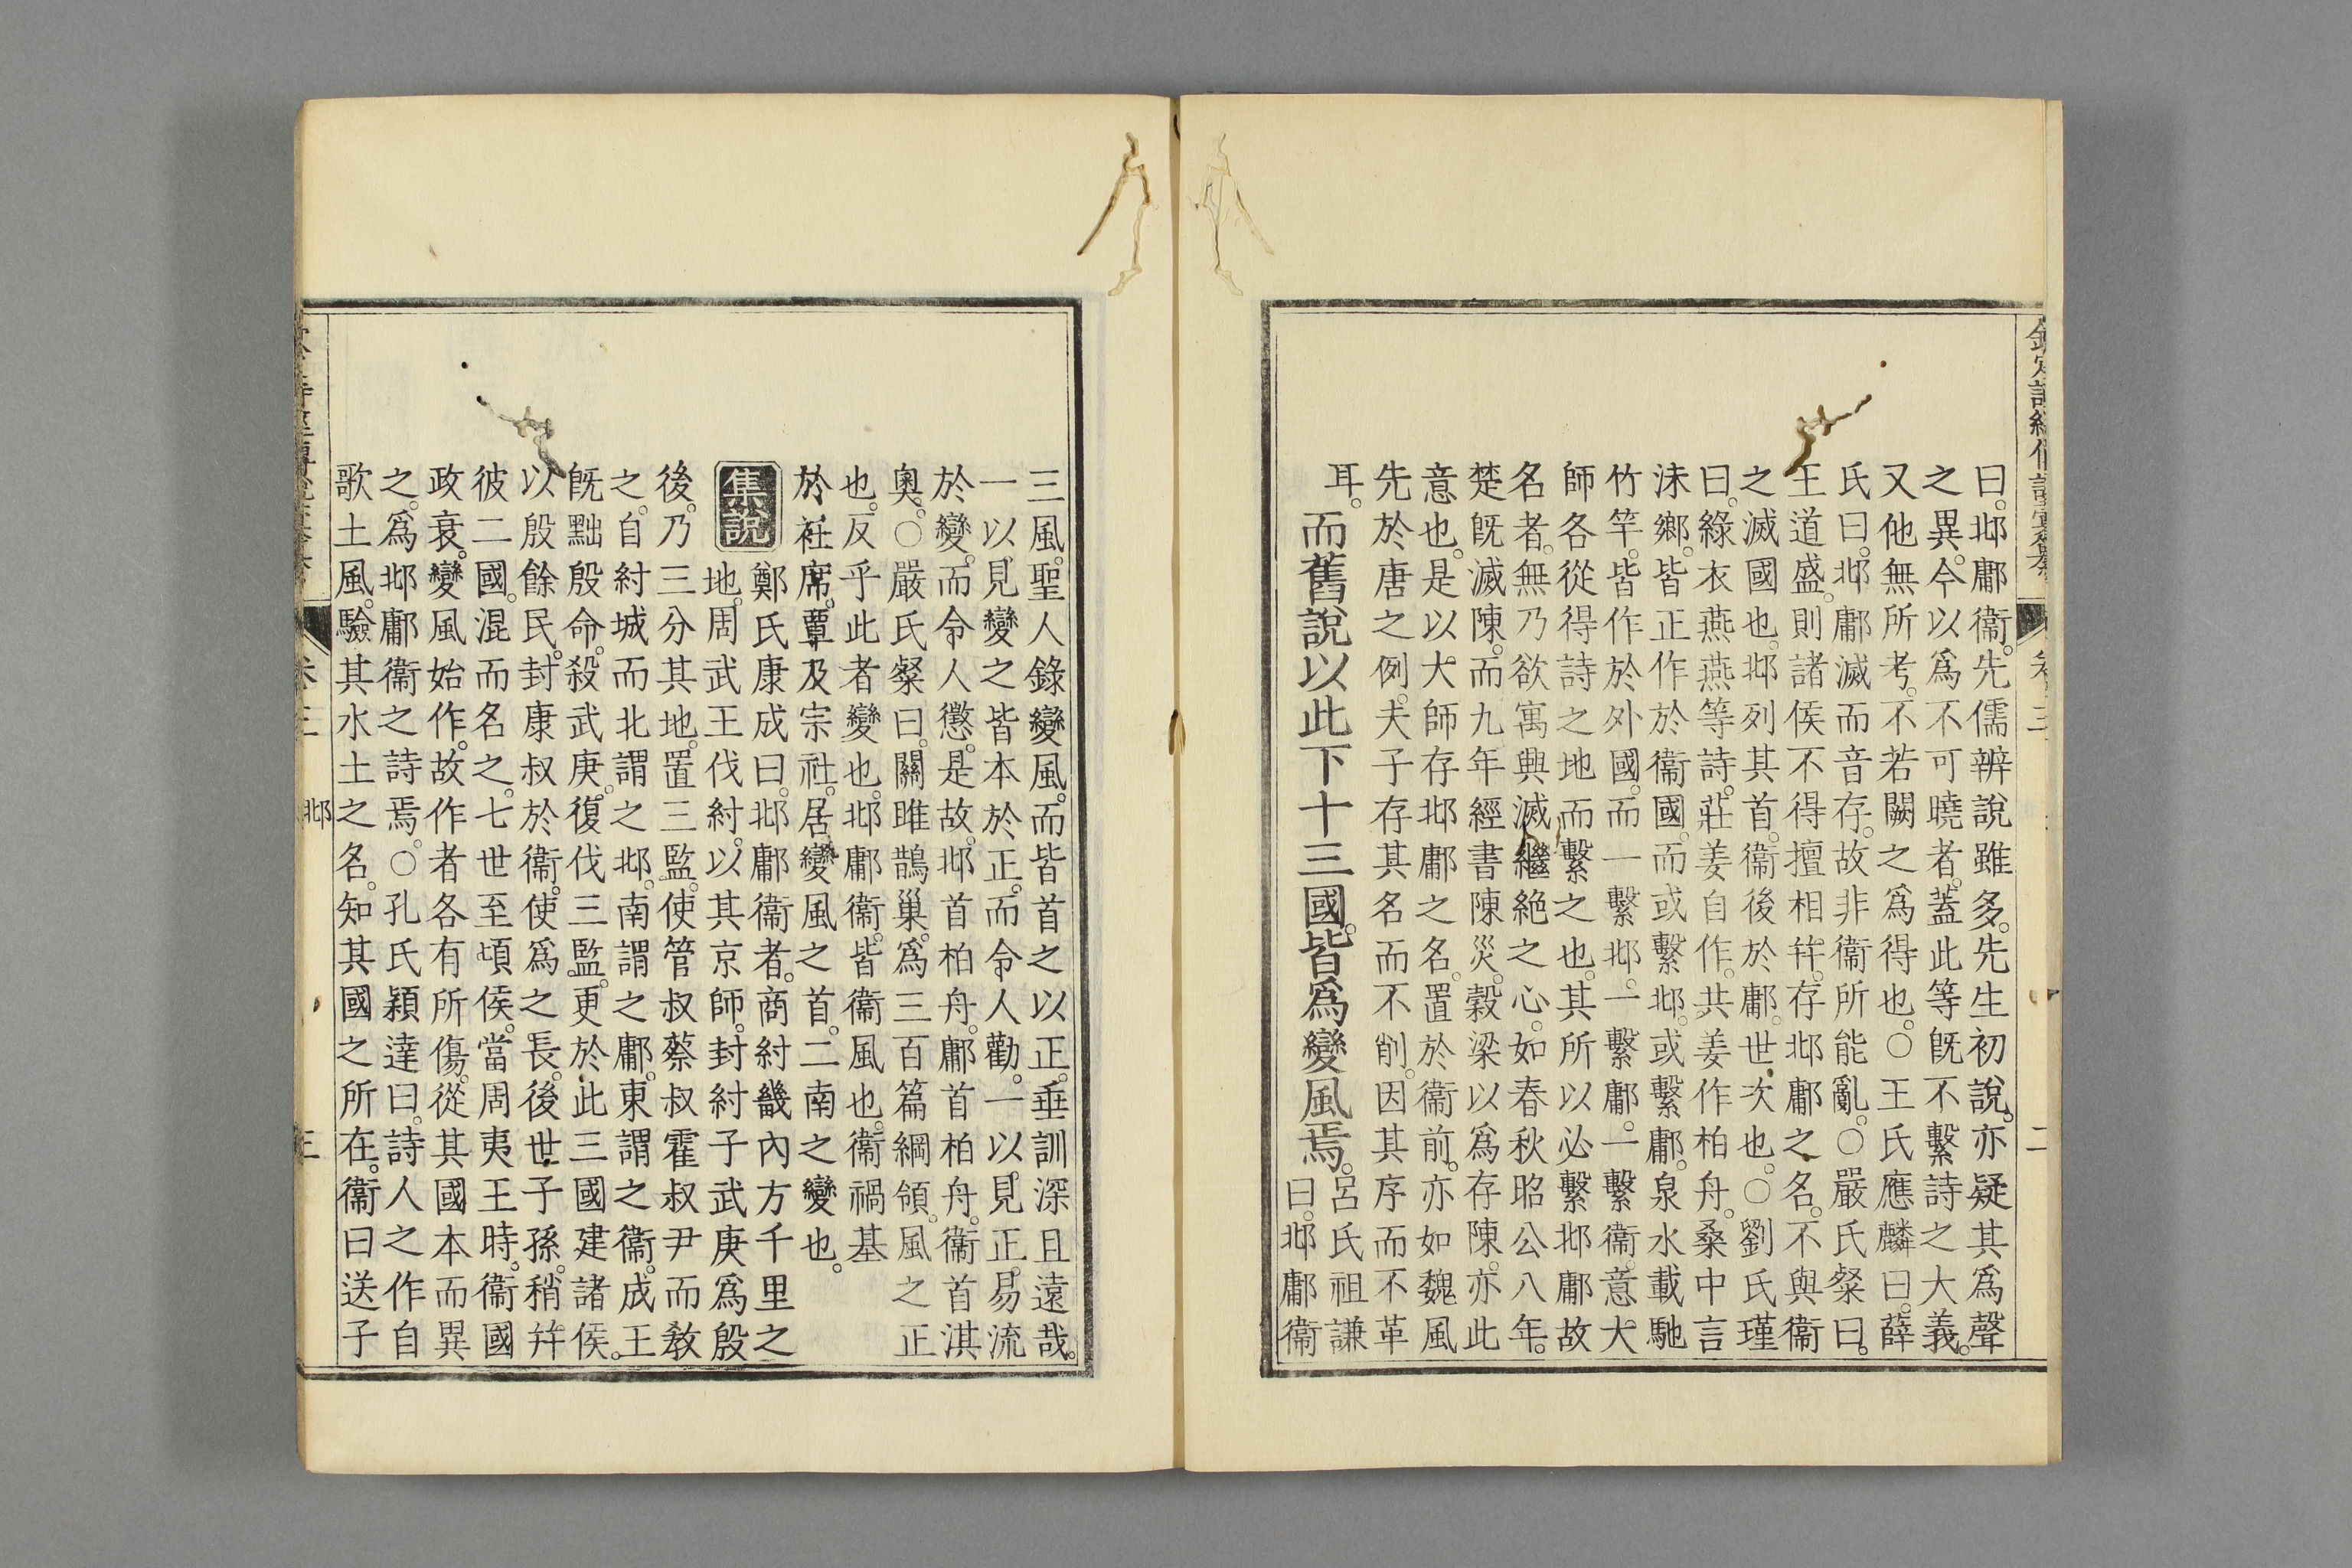 曰。邶鄘衞。先儒辨說雖多。先生初說。亦疑其爲聲
之異。今以爲不可曉者。蓋此等旣不繫詩之大義。
又他無所考。不若闕之爲得也。○王氏應麟曰。薛
氏曰。邶鄘滅而音存。故非衞所能亂。○嚴氏粲曰。
王道盛。則諸侯不得擅相幷。存邶鄘之名。不與衞
之滅國也。邶列其首。衞後於鄘。世次也。○劉氏瑾
曰。綠衣燕燕等詩。莊姜自作。共姜作柏舟。桑中言
沬鄉。皆正作於衞國。而或繫邶。或繫鄘。泉水載馳
竹竿。皆作於外國。而一繫邶。一繫鄘。一繫衞。意大
師各從得詩之地而繫之也。其所以必繫邶鄘故
名者。無乃欲寓興滅繼絕之心。如春秋昭公八年。
楚旣滅陳。而九年經書陳災。穀梁以爲存陳。亦此
意也。是以大師存邶鄘之名。置於衞前。亦如魏風
先於唐之例。夫子存其名而不削。因其序而不革
耳。而舊說以此下十三國。皆爲變風焉。呂氏祖謙
曰。邶鄘衞
三風。聖人錄變風。而皆首之以正。垂訓深且遠哉。
一以見變之皆本於正。而令人勸。一以見正。易流
於變。而令人懲。是故。邶首柏舟。鄘首柏舟。衞首淇
奧。○嚴氏粲曰。關雎鵲巢。爲三百篇綱領。風之正
也。反乎此者變也。邶鄘衞。皆衞風也。衞禍基
於衽席。覃及宗社。居變風之首。二南之變也。
集說
鄭氏康成曰。邶鄘衞者。商紂畿內方千里之
地。周武王伐紂。以其京師。封紂子武庚爲殷
後。乃三分其地。置三監。使管叔蔡叔霍叔尹而敎
之。自紂城而北謂之邶。南謂之鄘。東謂之衞。成王
旣黜殷命。殺武庚。復伐三監。更於此三國建諸侯。
以殷餘民。封康叔於衞。使爲之長。後世子孫。稍幷
彼二國。混而名之。七世至頃侯。當周夷王時。衞國
政衰。變風始作。故作者各有所傷。從其國本而異
之。爲邶鄘衞之詩焉。○孔氏穎達曰。詩人之作自
歌土風。驗其水土之名。知其國之所在。衞曰送子
卷三 邶 三